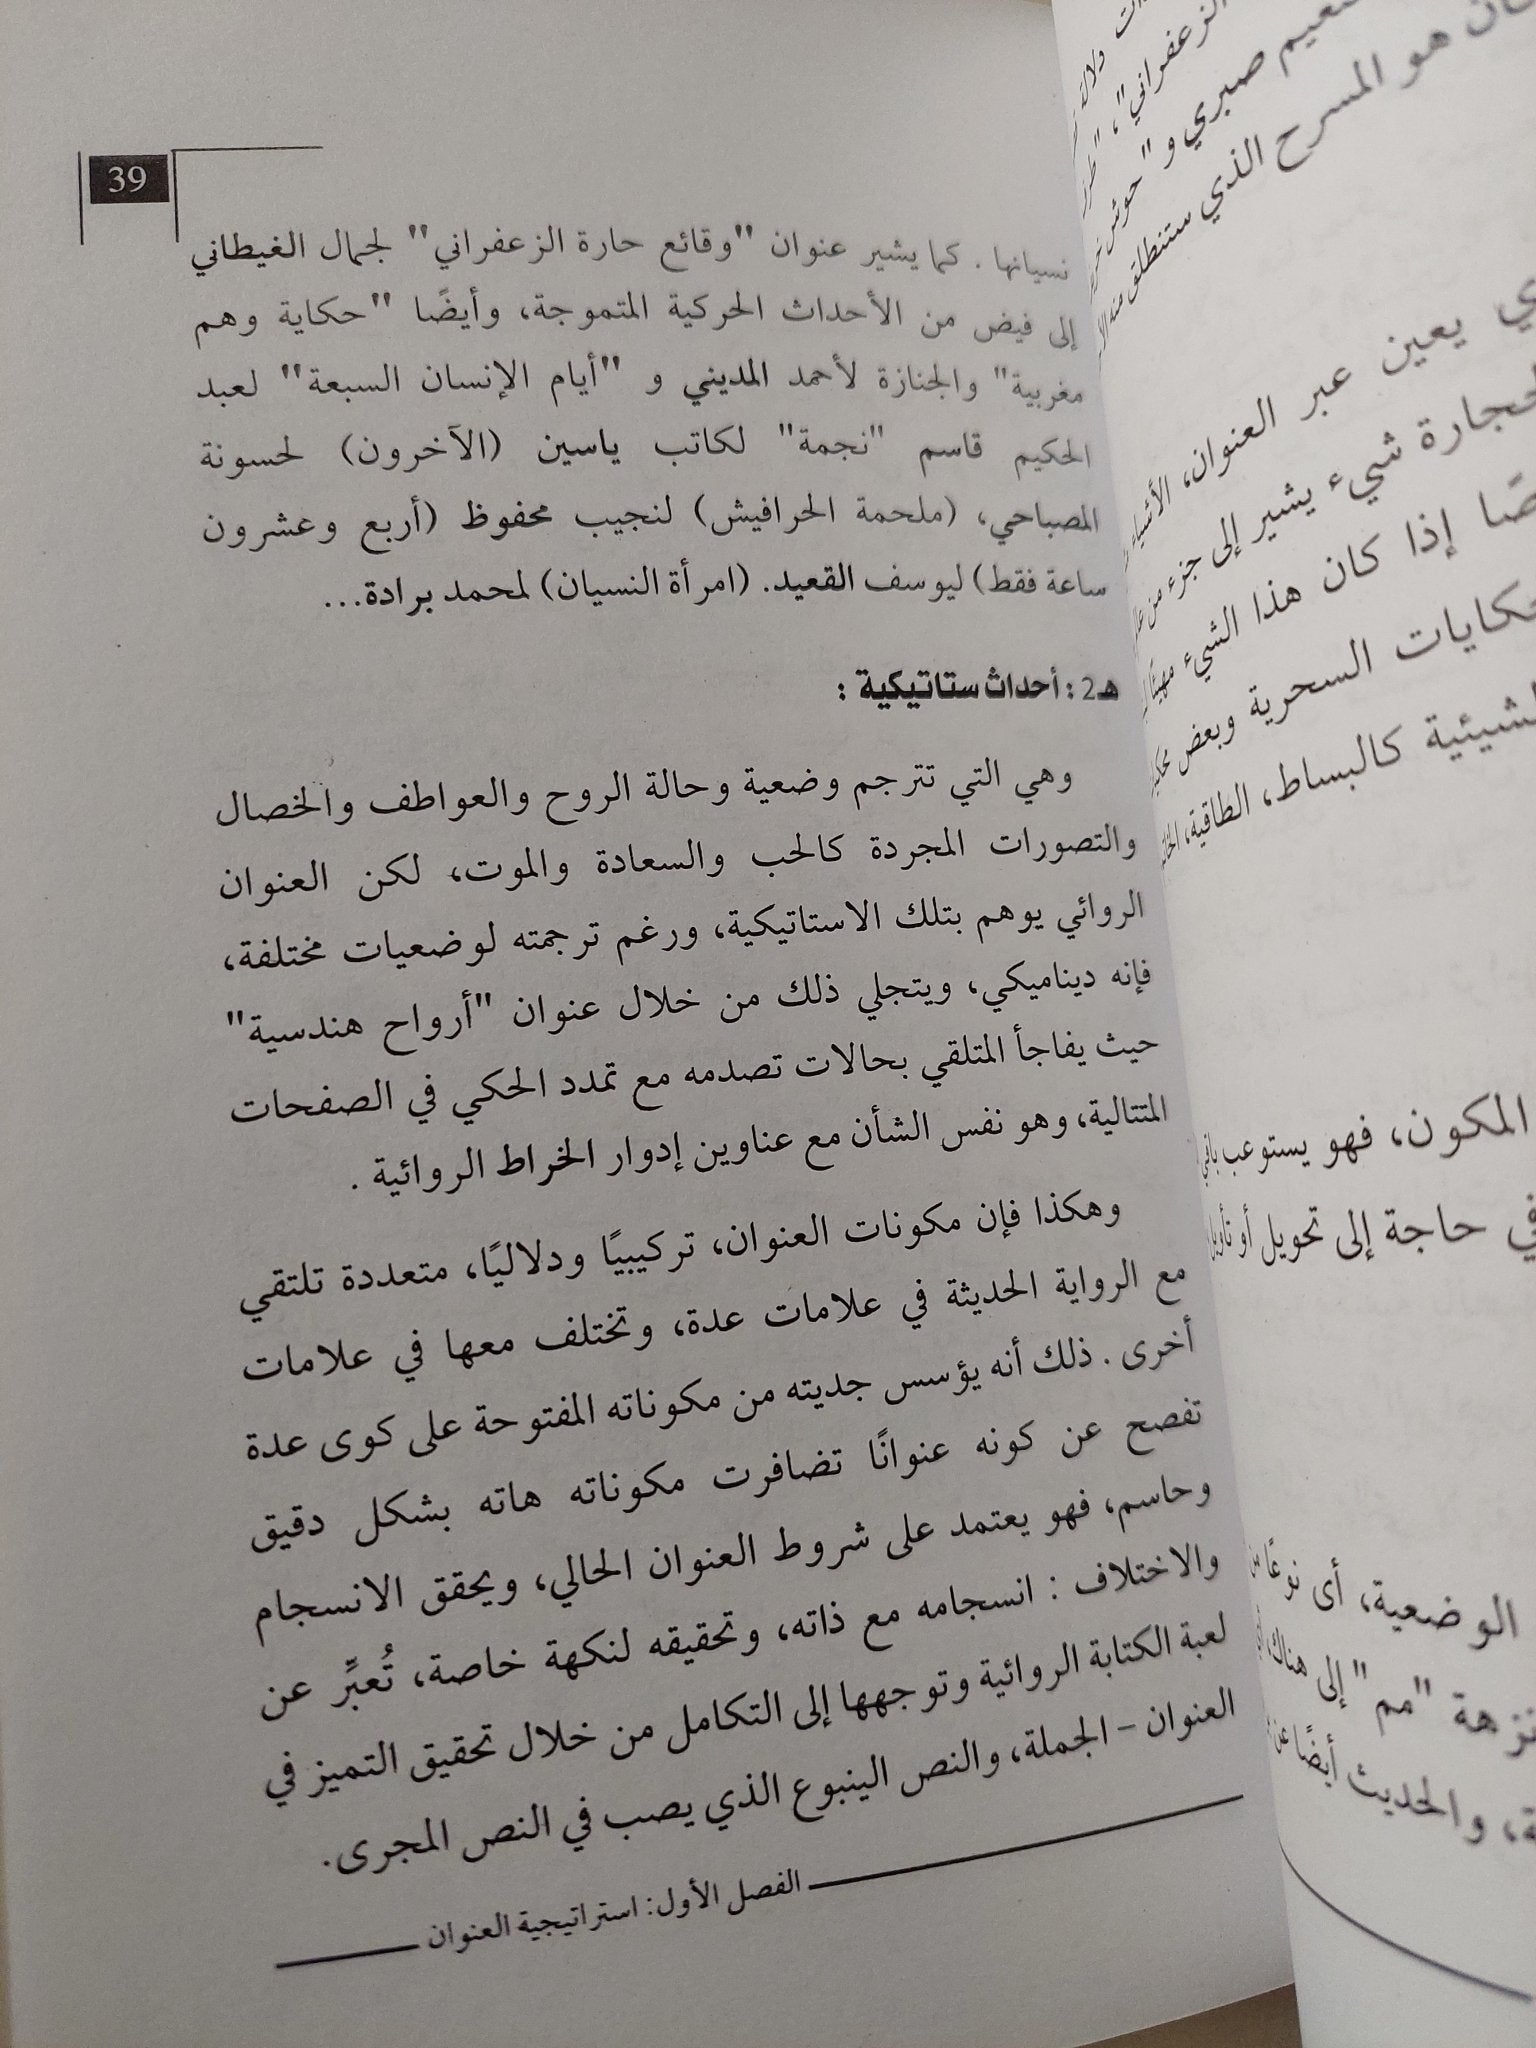 39
نسيانها . كما يشير عنوان "وقائع حارة الزعفراني" لجمال الغيطاني
إلى فيض من الأحداث الحركية المتموجة، وأيضًا "حكاية وهم
مغربية" والجنازة لأحمد المديني و "أيام الإنسان السبعة" لعبد
الحكيم قاسم "نجمة" لكاتب ياسين (الآخرون) لحسونة
المصباحي، (ملحمة الحرافيش) لنجيب محفوظ (أربع وعشرون
ساعة فقط) ليوسف القعيد. (امرأة النسيان) لمحمد برادة...
هـ2 : أحداث ستاتيكية :
وهي التي تترجم وضعية وحالة الروح والعواطف والخصال
والتصورات المجردة كالحب والسعادة والموت، لكن العنوان
الروائي يوهم بتلك الاستاتيكية، ورغم ترجمته لوضعيات مختلفة،
فإنه ديناميكي، ويتجلي ذلك من خلال عنوان "أرواح هندسية"
حيث يفاجأ المتلقي بحالات تصدمه مع تمدد الحكي في الصفحات
المتتالية، وهو نفس الشأن مع عناوين إدوار الخراط الروائية .
وهكذا فإن مكونات العنوان، تركيبيًا ودلاليًا، متعددة تلتقي
مع الرواية الحديثة في علامات عدة، وتختلف معها في علامات
أخرى . ذلك أنه يؤسس جديته من مكوناته المفتوحة على كوى عدة
تفصح عن كونه عنوانًا تضافرت مكوناته هاته بشكل دقيق
وحاسم، فهو يعتمد على شروط العنوان الحالي، ويحقق الانسجام
والاختلاف : انسجامه مع ذاته، وتحقيقه لنكهة خاصة، تُعبِّر عن
لعبة الكتابة الروائية وتوجهها إلى التكامل من خلال تحقيق التميز في
العنوان – الجملة، والنص الينبوع الذي يصب في النص المجرى.
الفصل الأول: استراتيجية العنوان
الزعفراني"،
نعيم صبري و "حوش
هو المسرح الذي ستنطلق منه
يعين عبر العنوان، الأشياء
شيء يشير إلى جزء من
إذا كان هذا الشيء مهيئًا
السحرية وبعض
كالبساط، الطاقية،
المكون، فهو يستوعب
في حاجة إلى تحويل أو تأويل
الوضعية، أى نوعًا
"مم" إلى هناك،
والحديث أيضًا عن